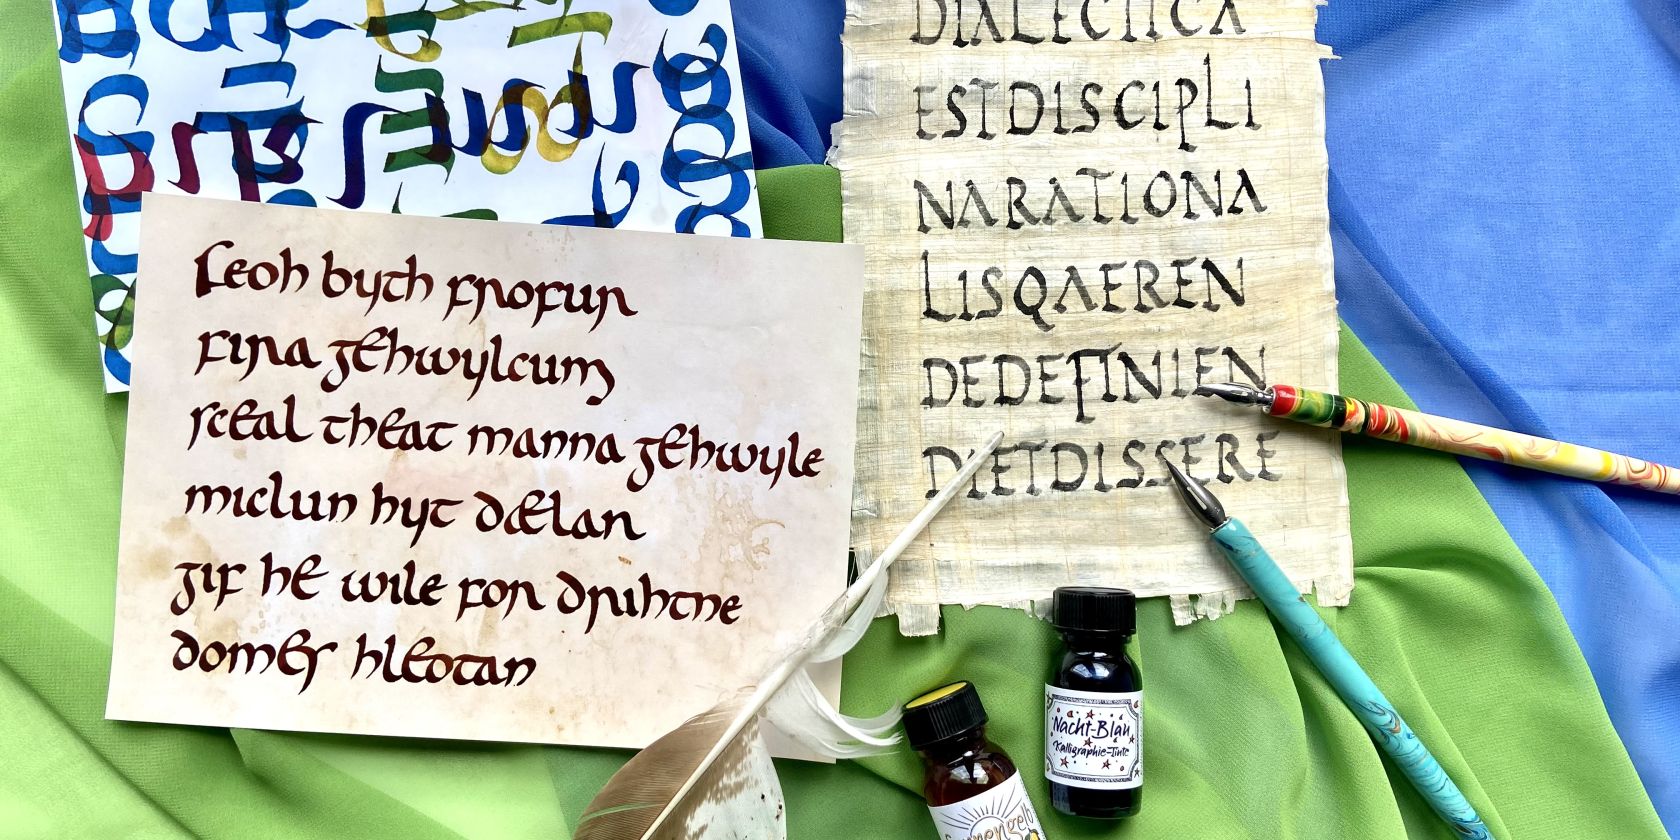 Feoh byth frofur
fira gehwylcum
sceal theat manna gehwyle
miclun hyt dælan
gif he wile for drihtne
domes hleotan
DIALECTICA
ESTDISCIPLI
NARATIONA
LISQAEREN
DEDEFINIEN
DIETDISSERE
Nacht-Blau
Kalligraphie-Tinte